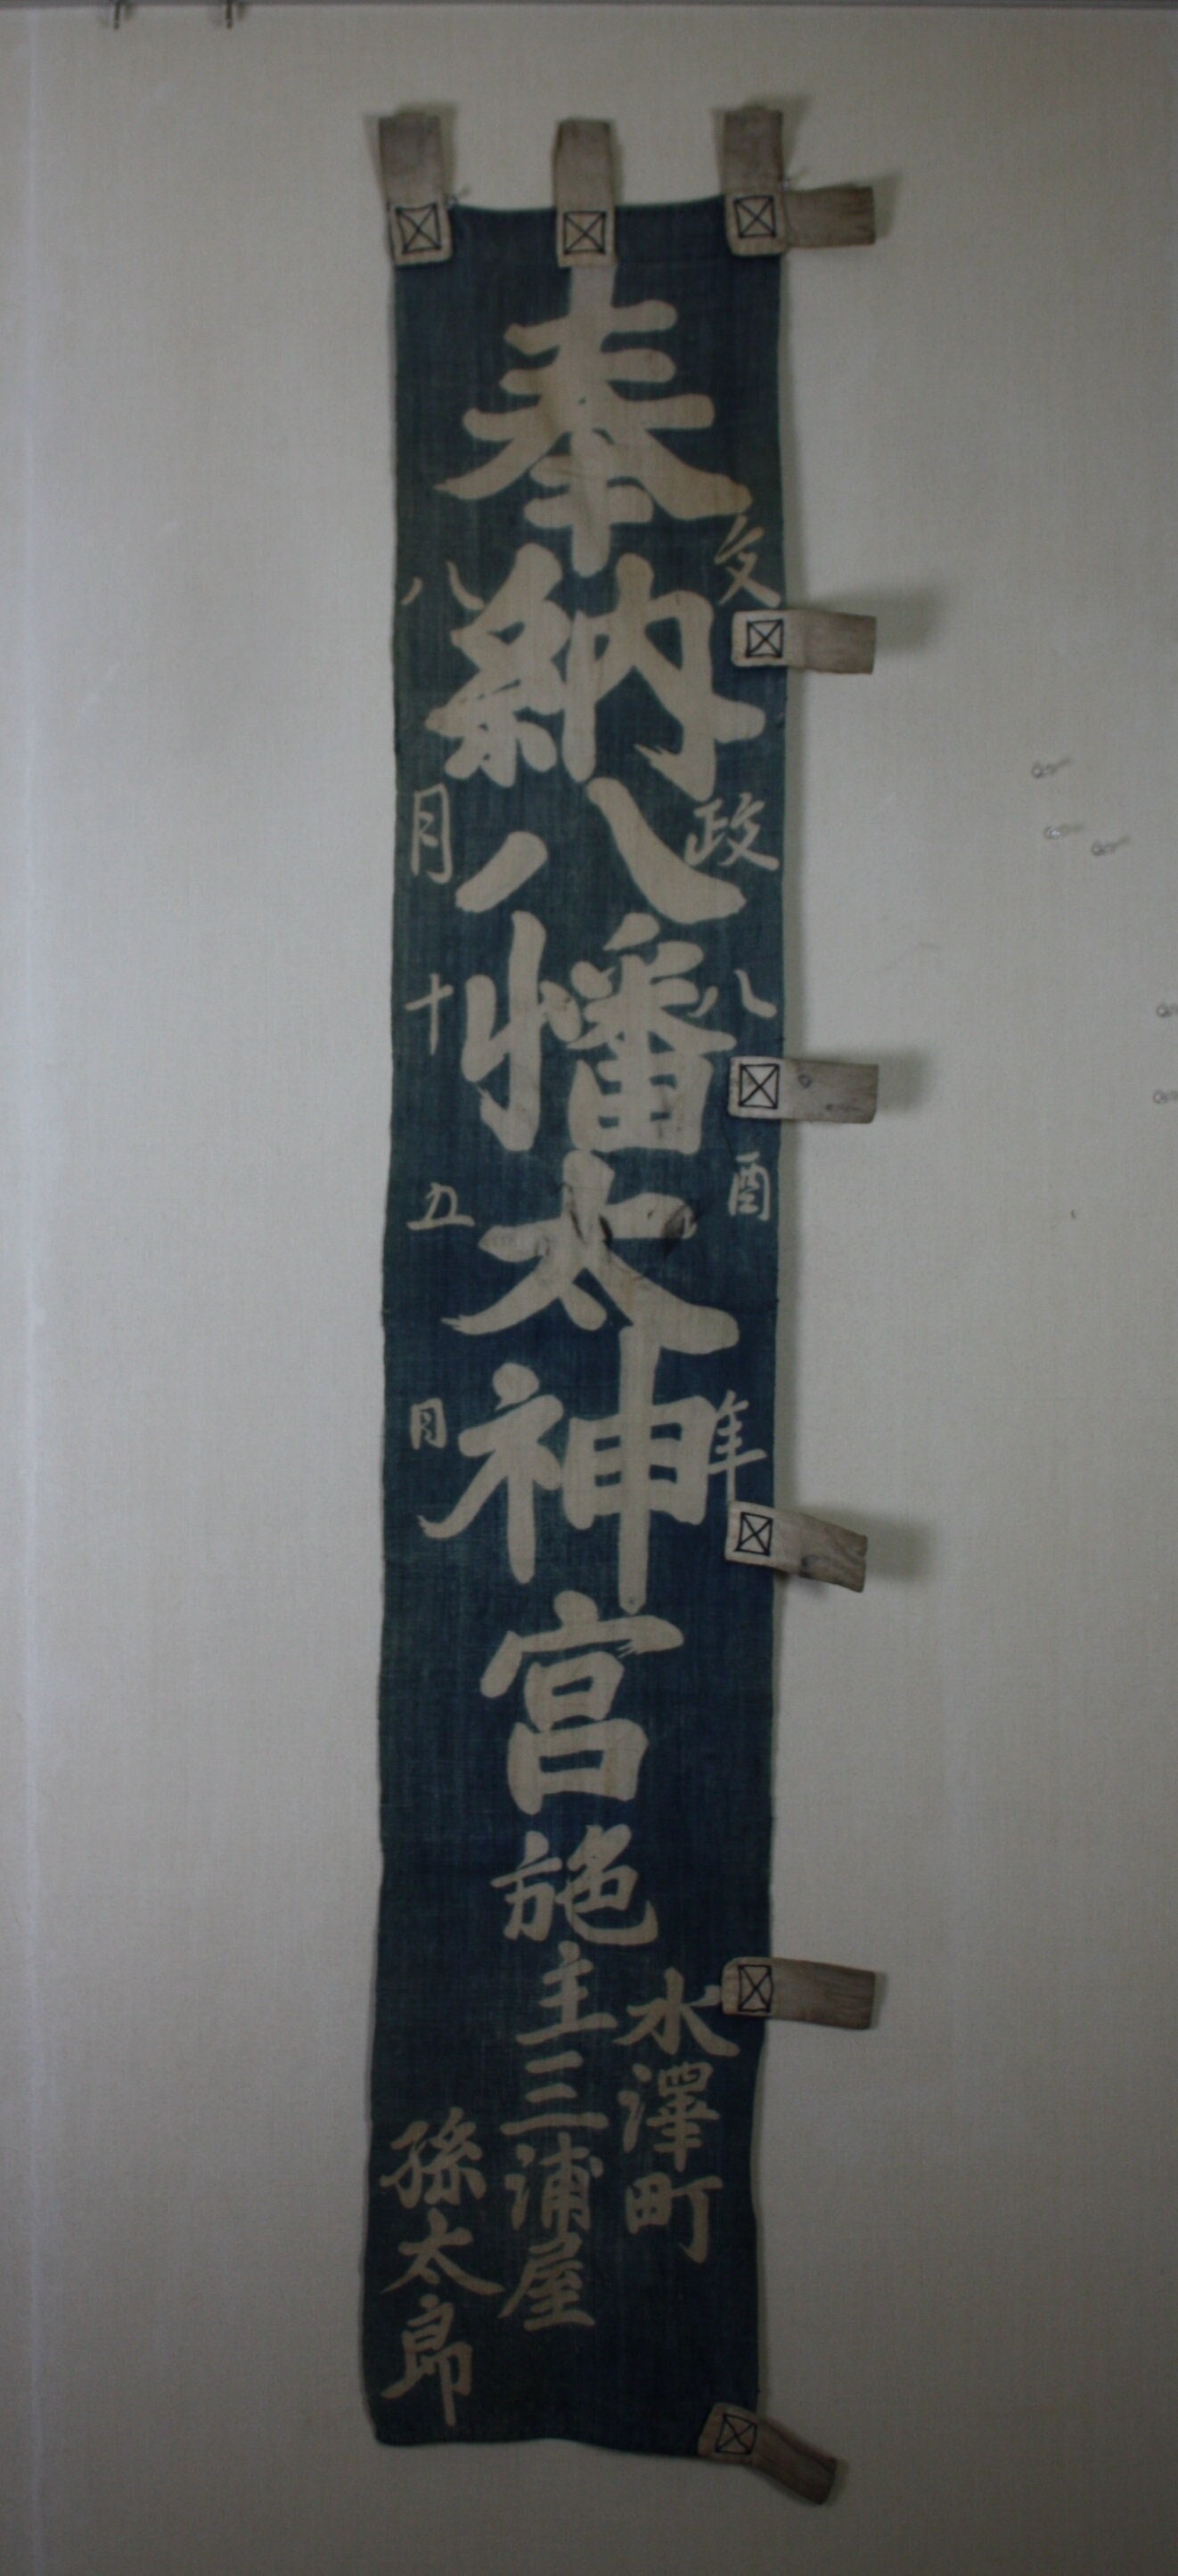 奉納八幡太神宮
文政八酉年
八月十五日
水澤町
施主三浦屋
孫太郎